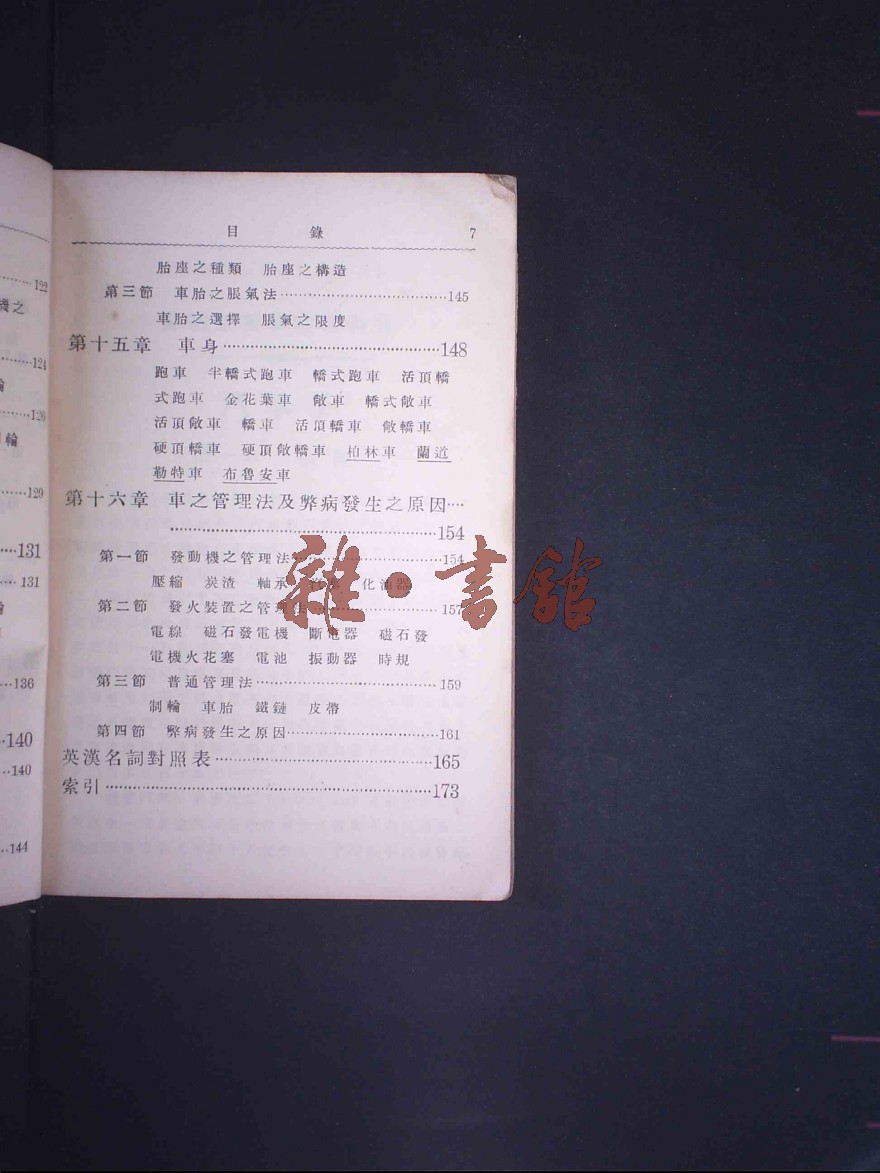 122
機之
124
輪
126
輪
129
131
131
136
140
140
144
目 錄 7
胎座之種類 胎座之構造
第三節 車胎之脹氣法……145
車胎之選擇 脹氣之限度
第十五章 車身……148
跑車 半轎式跑車 轎式跑車 活頂轎
式跑車 金花葉車 敞車 轎式敞車
活頂敞車 轎車 活頂轎車 敞轎車
硬頂轎車 硬頂敞轎車 柏林車 蘭道
勒特車 布魯安車
第十六章 車之管理法及弊病發生之原因……
……154
第一節 發動機之管理法……154
壓縮 炭渣 軸承 化油器
第二節 發火裝置之管理法……157
電線 磁石發電機 斷電器 磁石發
電機火花塞 電池 振動器 時規
第三節 普通管理法……159
制輪 車胎 鐵鏈 皮帶
第四節 弊病發生之原因……161
英漢名詞對照表……165
索引……173
雜·書館